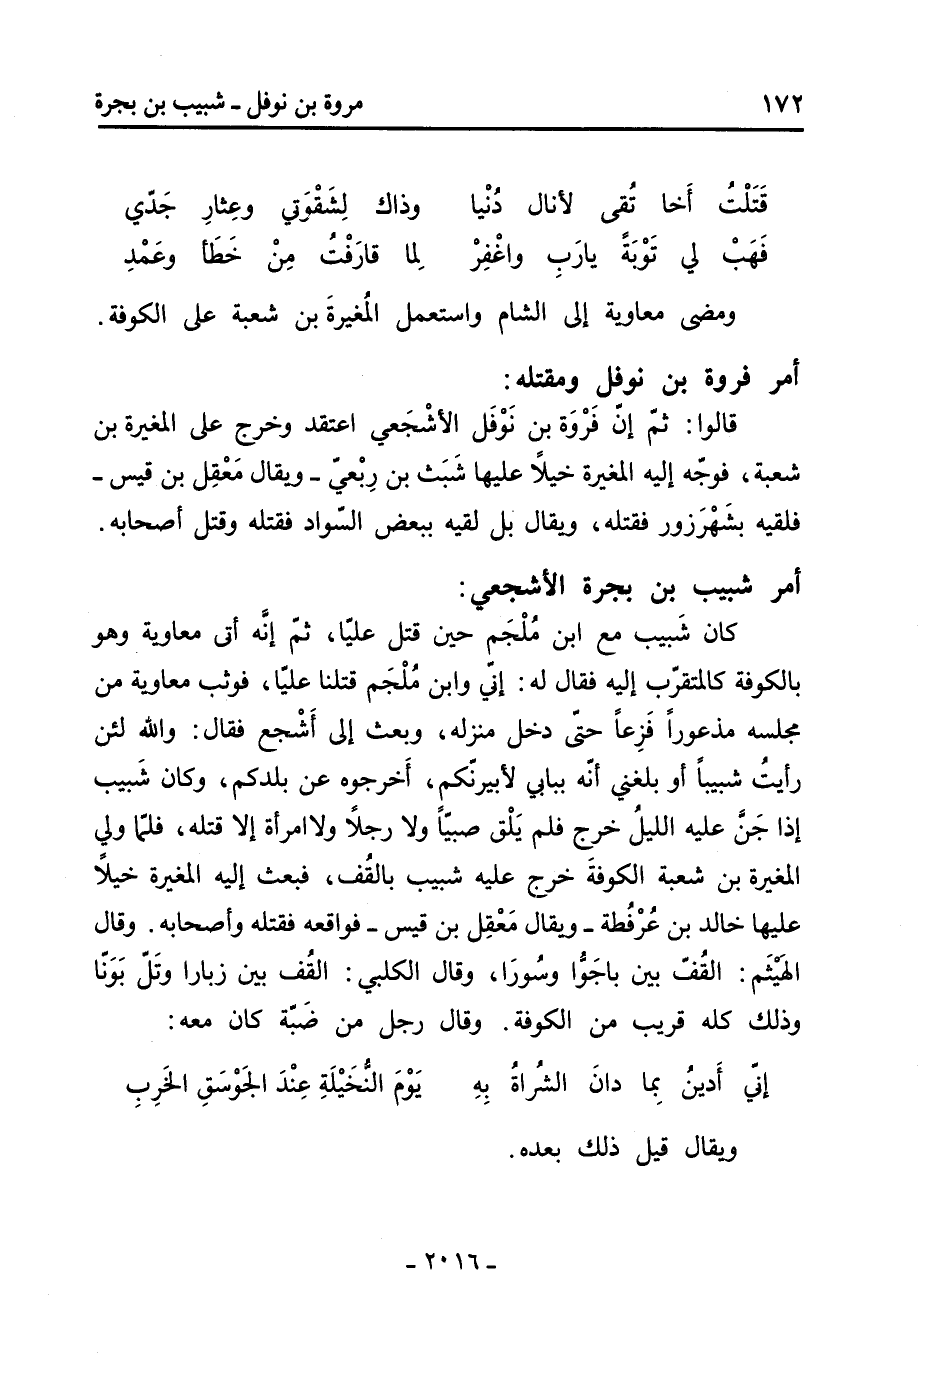 ١٧٢ مروة بن نوفل ـ شبيب بن بجرة
قَتَلْتُ أَخا تُقى لأنال دُنْيا وذاك لِشَقْوَتي وعِثارِ جَدّي
فَهَبْ لي تَوْبَةً يارَبِ واغْفِرْ لما قارَفْتُ مِنْ خَطَأ وعَمْدِ
ومضى معاوية إلى الشام واستعمل المُغيرةَ بن شعبة على الكوفة.
أمر فروة بن نوفل ومقتله:
قالوا: ثمّ إنّ فَرْوَة بن نَوْفَل الأشْجَعي اعتقد وخرج على المغيرة بن
شعبة، فوجّه إليه المغيرة خيلًا عليها شَبَث بن رِبْعيّ ـ ويقال مَعْقِل بن قيس ـ
فلقيه بشَهْرَزور فقتله، ويقال بل لقيه ببعض السّواد فقتله وقتل أصحابه.
أمر شبيب بن بجرة الأشجعي:
كان شَبيب مع ابن مُلْجَم حين قتل عليّا، ثمّ إنَّه أتى معاوية وهو
بالكوفة كالمتقرّب إليه فقال له: إنّي وابن مُلْجَم قتلنا عليّا، فوثب معاوية من
مجلسه مذعوراً فَزِعاً حتّى دخل منزله، وبعث إلى أَشْجع فقال: والله لئن
رأيتُ شبيباً أو بلغني أنّه ببابي لأبيرنّكم، أَخرجوه عن بلدكم، وكان شَبيب
إذا جَنَّ عليه الليلُ خرج فلم يَلْق صبيّاً ولا رجلًا ولاامرأة إلا قتله، فلمّا ولي
المغيرة بن شعبة الكوفةَ خرج عليه شبيب بالقُف، فبعث إليه المغيرة خيلًا
عليها خالد بن عُرْفُطة ـ ويقال مَعْقِل بن قيس ـ فواقعه فقتله وأصحابه. وقال
الهَيْثَم: القُفّ بين باجَوَّا وسُورَا، وقال الكلبي: القُف بين زبارا وتَلّ بَوَنّا
وذلك كله قريب من الكوفة. وقال رجل من ضَبّة كان معه:
إنّي أَدينُ بما دانَ الشُراةُ بِهِ يَوْمَ النُّخَيْلَةِ عِنْدَ الجَوْسَقِ الخَرِبِ
ويقال قيل ذلك بعده.
ـ ٢٠١٦ ـ